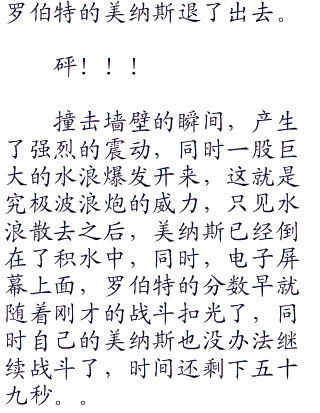 罗伯特的美纳斯退了出去。
砰！！！
撞击墙壁的瞬间，产生
了强烈的震动，同时一股巨
大的水浪爆发开来，这就是
究极波浪炮的威力，只见水
浪散去之后，美纳斯已经倒
在了积水中，同时，电子屏
幕上面，罗伯特的分数早就
随着刚才的战斗扣光了，同
时自己的美纳斯也没办法继
续战斗了，时间还剩下五十
九秒。。